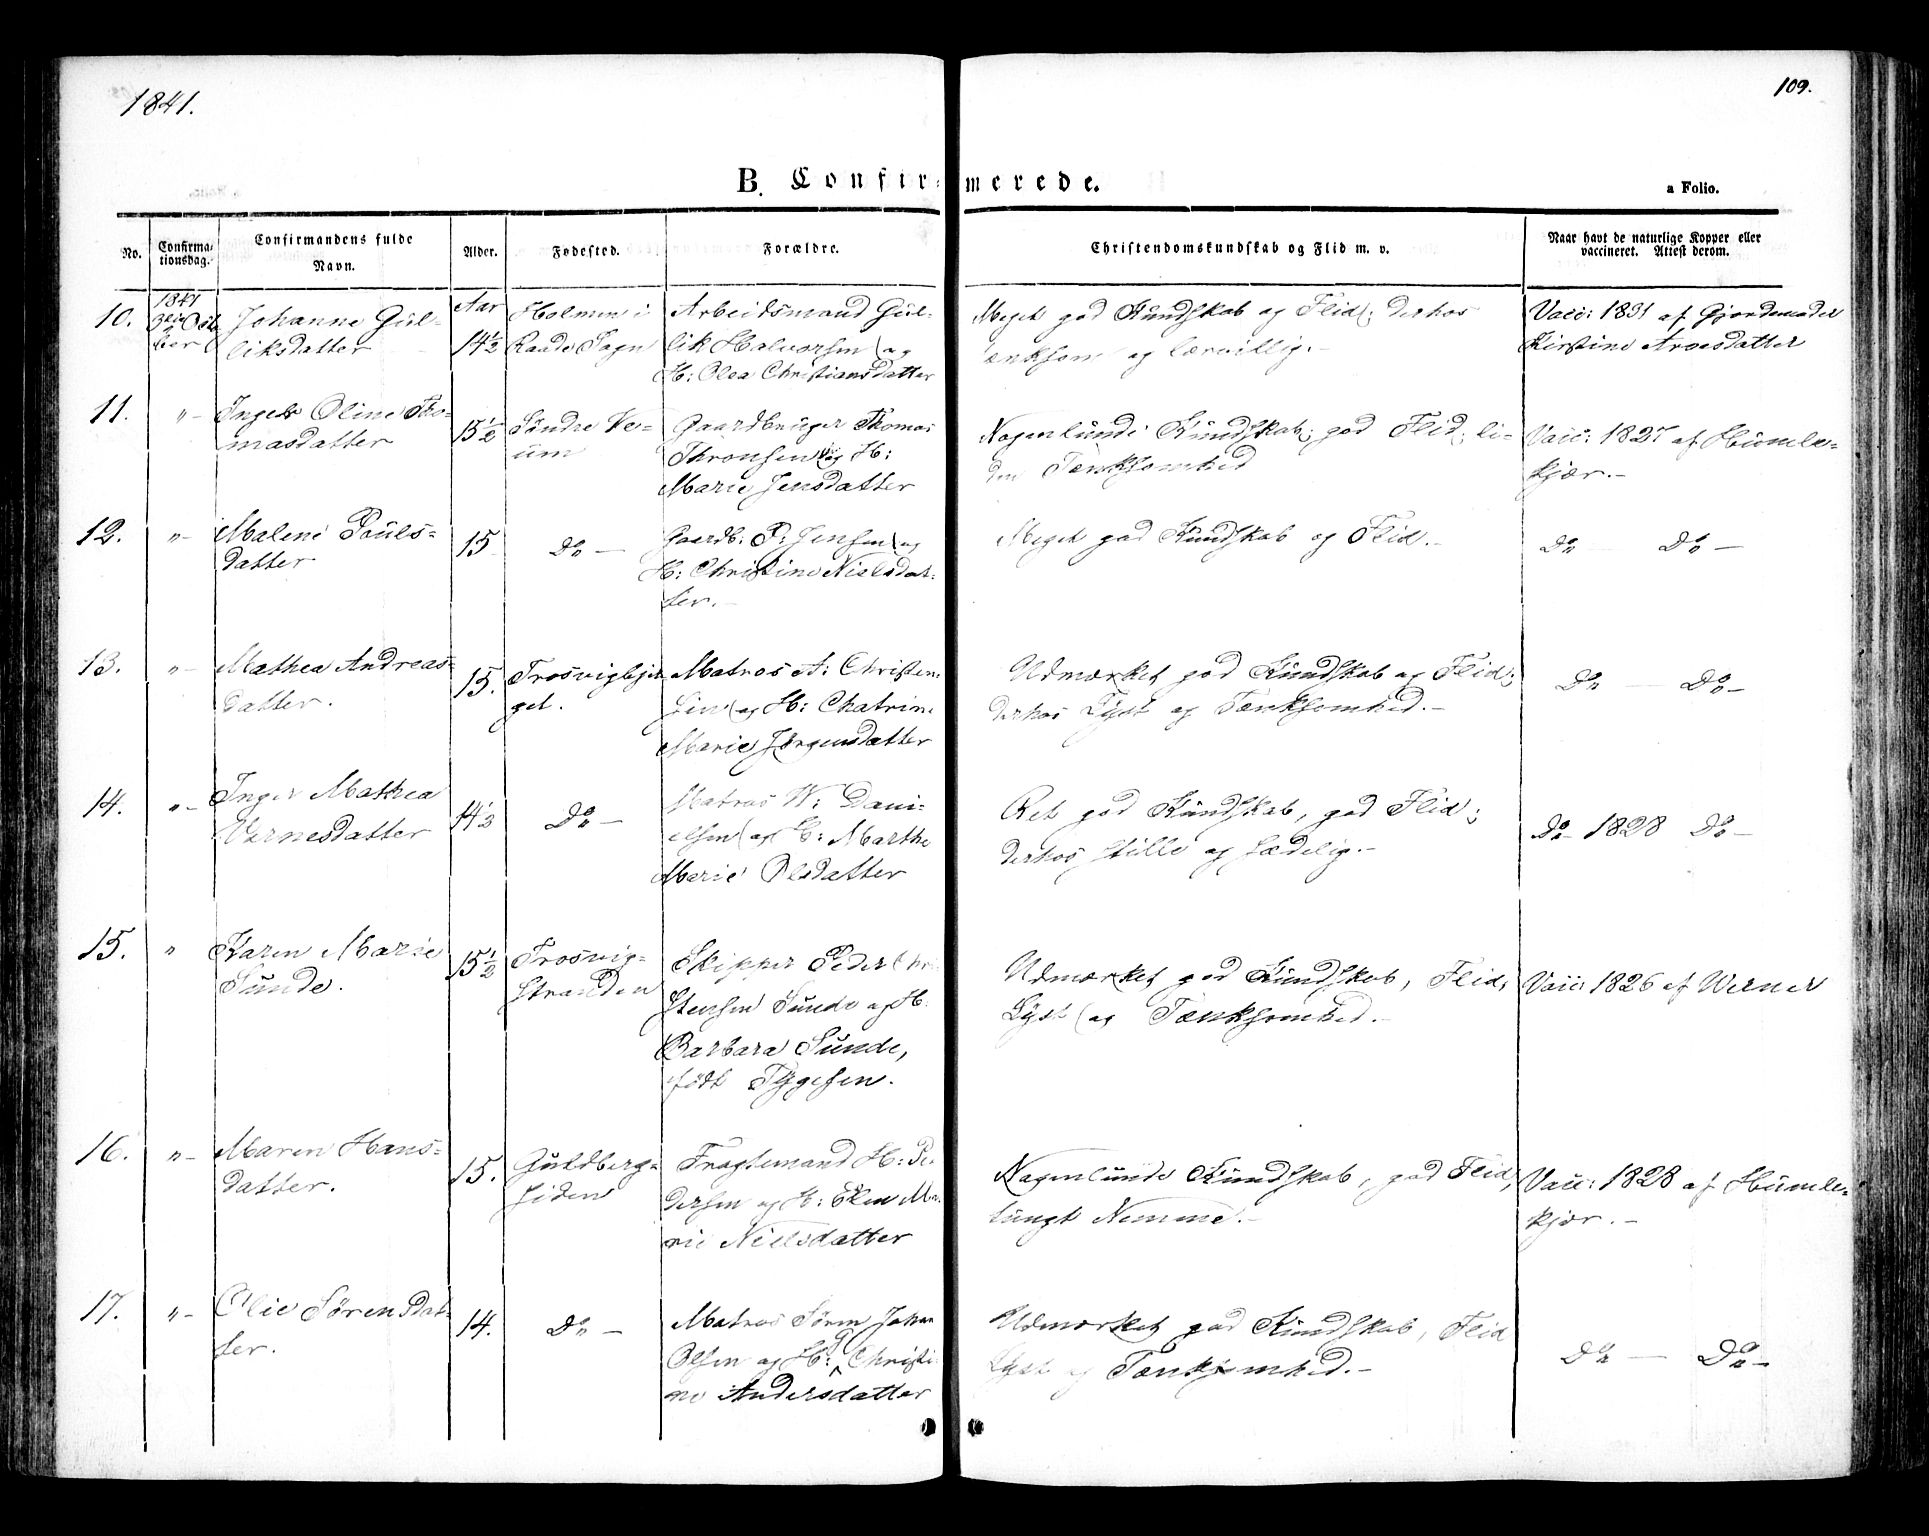 1841.
109.
B. Confirmerede.
a Folio.
No.
Confirma-
tionsdag.
Confirmandens fulde
Navn.
Alder.
Fødested.
Forældre.
Christendomskundskab og Flid m. v.
Naar havt de naturlige Kopper eller
vaccineret. Attest derom.
10.
1841
Octo-
ber
Johanne Gül-
liksdatter
Aar
14½
Holmen i
Raade Sogn
Arbeidsmand Gül-
lik Halvorsen og
H: Olea Christiansdatter
Meget god Kundskab og Flid; derhos
tænksom og lærvillig.-
Vacc: 1831 af Gjordemoder
Kirstine Arvesdatter
11.
"-
Ingeb Oline Tho-
masdatter
15½
Søndre Ve-
um
Gaardbruger Thomas
Thronsen og H:
Marie Jensdatter
Nogenlunde Kundskab; god Flid; li-
den Tænksomhed
Vacc: 1827 af Humle-
kjær.-
12.
"-
Malene Pouls-
datter
15
Do -
Gaardb: P: Jensen og
H: Christine Nielsdat-
ter.-
Meget god Kundskab og Flid.-
Do - Do -
13.
"-
Mathea Andreas-
datter.
15.
Trosvigbjer-
get.
Matros A: Christen-
sen og H: Chatrine
Marie Jørgensdatter
Udmærket god Kundskab og Flid;
derhos Lyst og Tænksomhed.-
Do - Do -
14.
"-
Inger Mathea
Vernesdatter
14½
Do -
Matros W: Dani-
elsen og H: Marthe
Marie Olsdatter
Ret god Kundskab, god Flid;
derhos stille og sædelig.-
Do 1828 Do -
15.
"
Karen Marie
Sunde.
15½
Trosvig-
stranden
Skipper Peder Chri-
stensen Sunde og H.
Barbara Sunde,
født Tygesen.
Udmærket god Kundskab, Flid,
Lyst og Tænksomhed.-
Vacc 1826 af Werner
16.
"-
Maren Hans-
datter.
15.
Guldberg-
siden
Fragtemand H: Pe-
dersen og H: Elen Ma-
rie Nielsdatter
Nogenlunde Kundskab, god Flid,
tungt Nemme.-
Vacc: 1828 af Humle-
kjær.-
17.
"-
Olie Sørensdat-
ter.
14.
Do -
Matros Søren Johan
Olsen og H: Christi-
ne Andersdatter
Udmærket god Kundskab, Flid
Lyst og Tænksomhed.-
Do - Do -